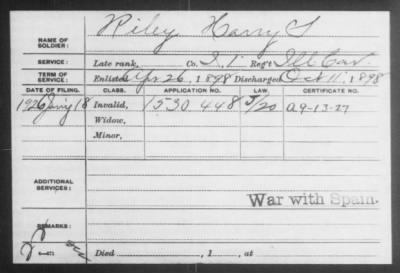 Riley Harry S
NAME OF SOLDIER:
SERVICE: Late rank, Co. I, 1 Reg't Ill Cav.
TERM OF SERVICE: Enlisted Apr 26, 1898 Discharged Oct 11, 1898
DATE OF FILING. CLASS. APPLICATION NO. LAW. CERTIFICATE NO.
1926 18 Invalid, 1530 448 5/20 A 9-13-27
Widow,
Minor,
ADDITIONAL SERVICES:
War with Spain.
REMARKS:
6—671
Died , 1 , at